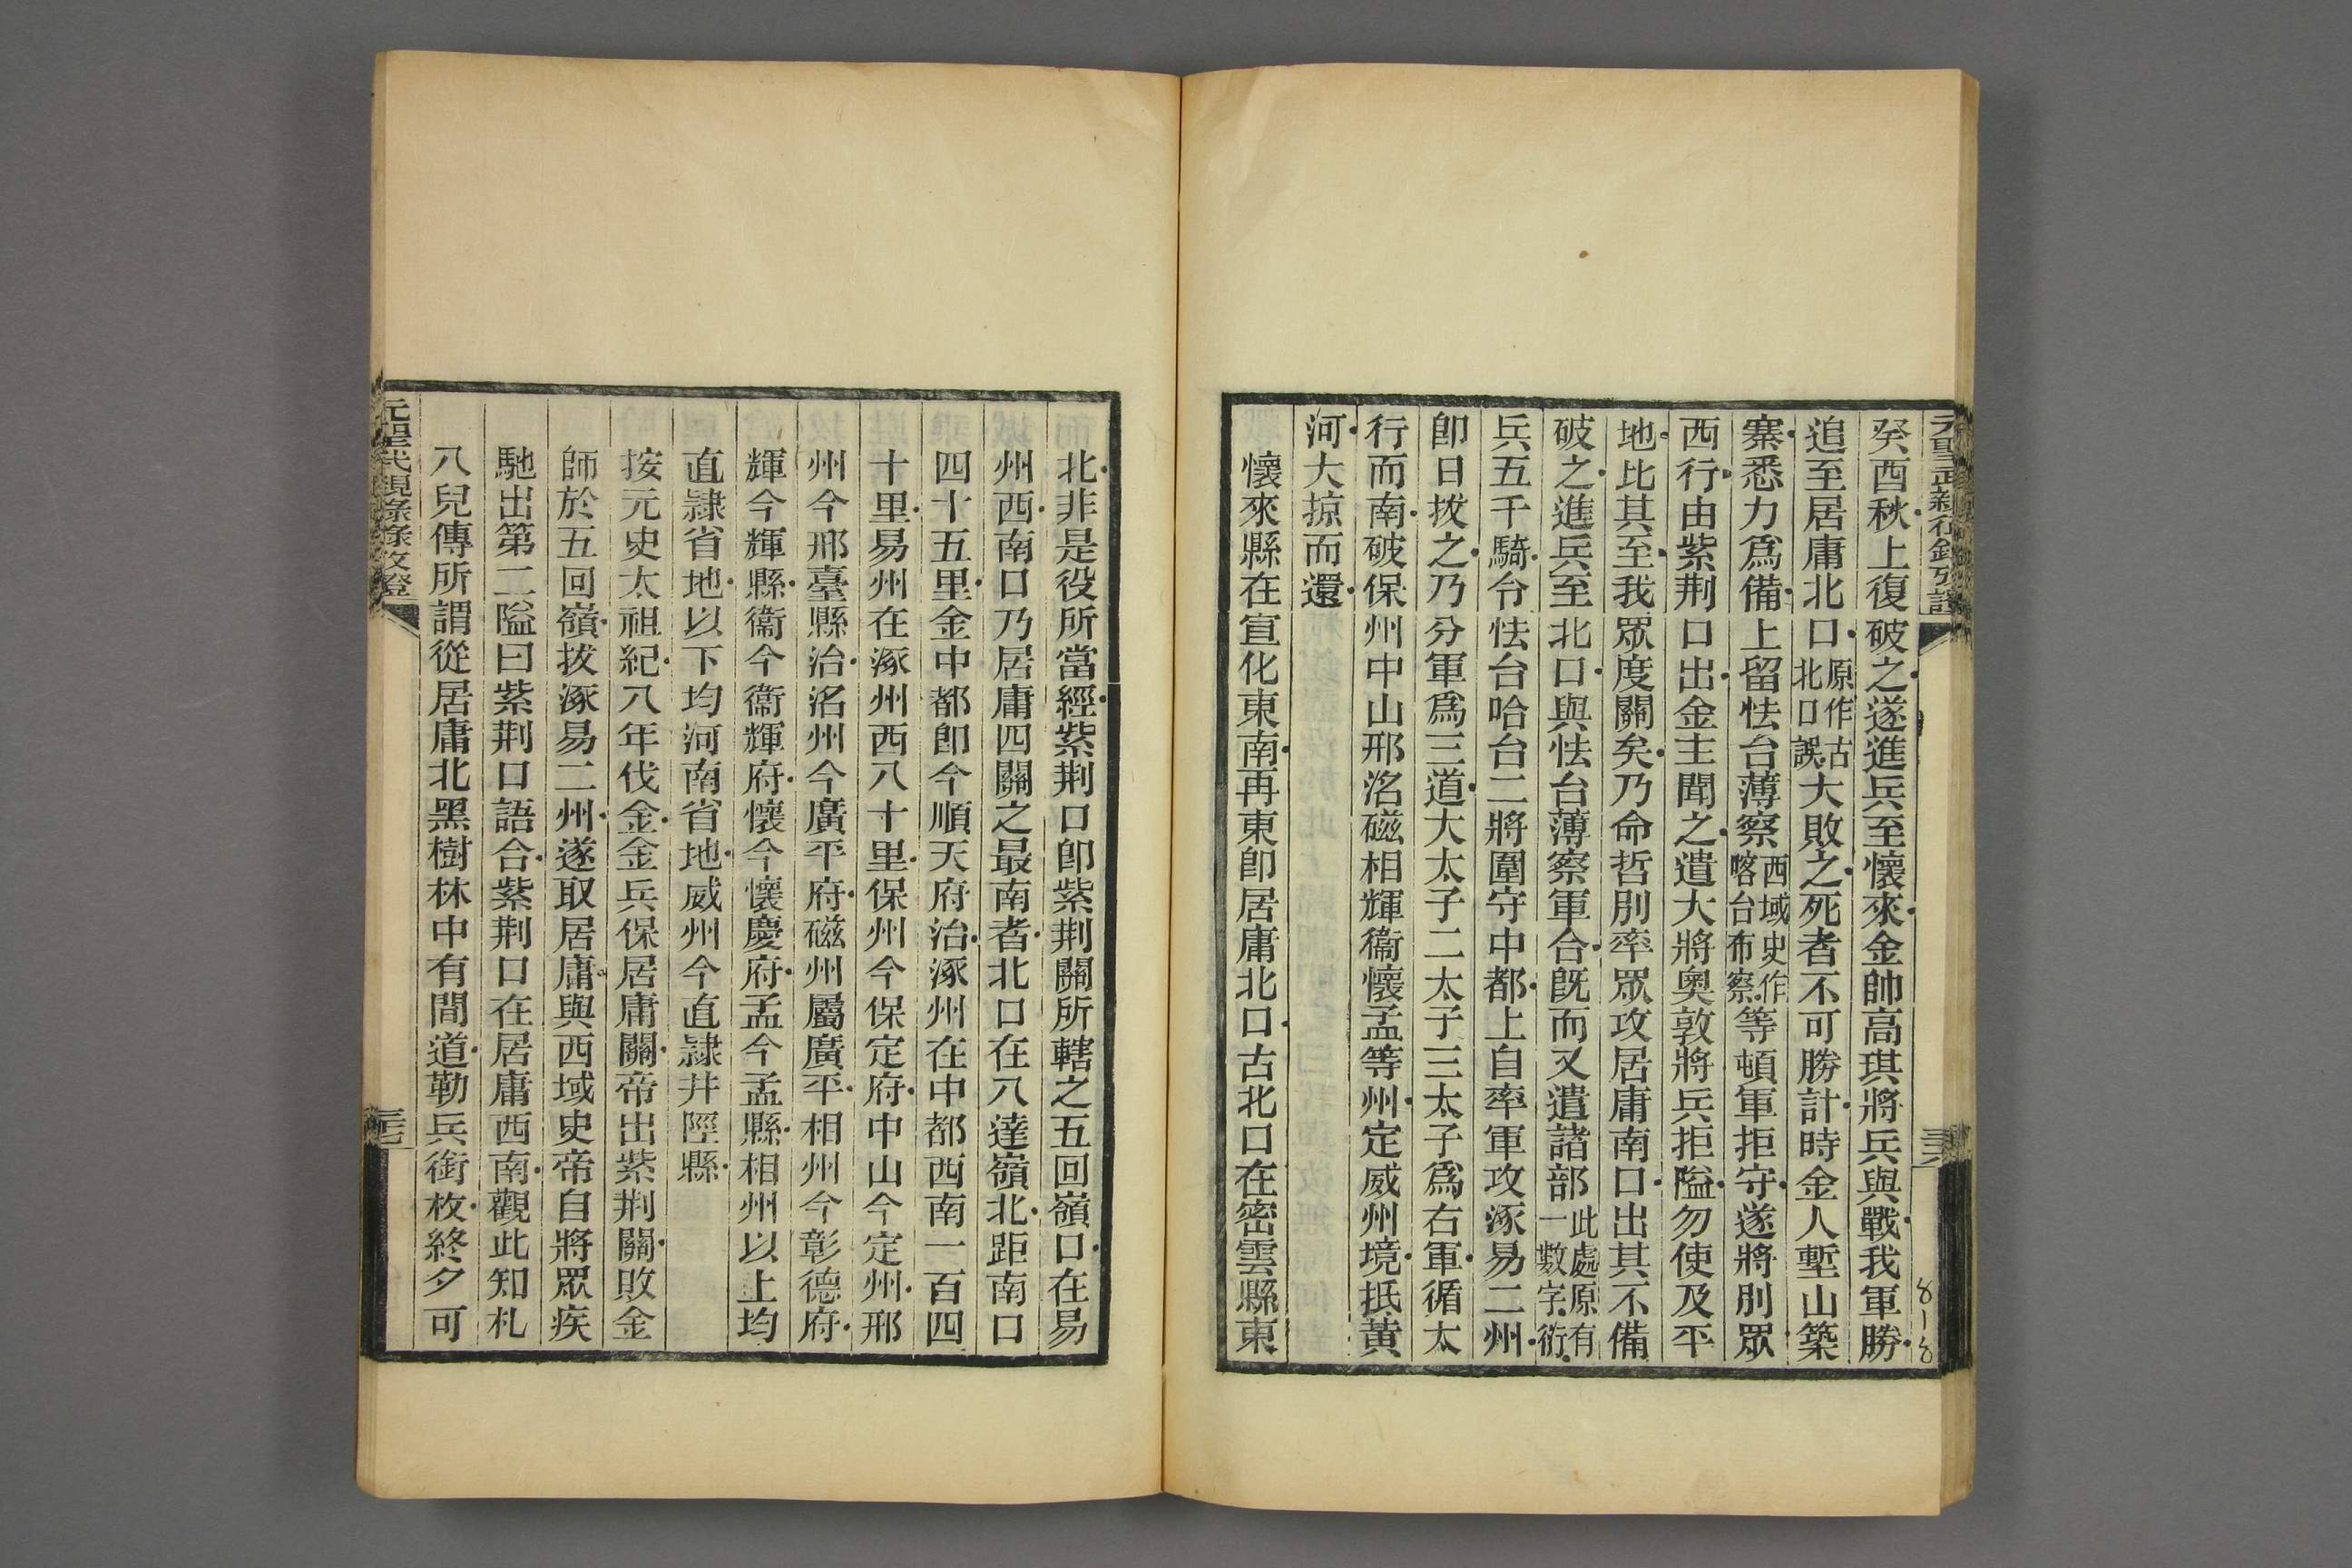 元聖武親征錄攷證
三六
818
癸酉秋上復破之遂進兵至懷來金帥高琪將兵與戰我軍勝
追至居庸北口原作古北口誤大敗之死者不可勝計時金人塹山築
寨悉力爲備上留怯台薄察西域史作喀台布察等頓軍拒守遂將別眾
西行由紫荆口出金主聞之遣大將奧敦將兵拒隘勿使及平
地比其至我眾度關矣乃命哲別率眾攻居庸南口出其不備
破之進兵至北口與怯台薄察軍合旣而又遣諸部此處原有一數字衍
兵五千騎令怯台哈台二將圍守中都上自率軍攻涿易二州
卽日拔之乃分軍爲三道大太子二太子三太子爲右軍循太
行而南破保州中山邢洺磁相輝衞懷孟等州定威州境抵黃
河大掠而還
懷來縣在宣化東南再東卽居庸北口古北口在密雲縣東
北非是役所當經紫荆口卽紫荆關所轄之五回嶺口在易
州西南口乃居庸四關之最南者北口在八達嶺北距南口
四十五里金中都卽今順天府治涿州在中都西南一百四
十里易州在涿州西八十里保州今保定府中山今定州邢
州今邢臺縣治洺州今廣平府磁州屬廣平相州今彰德府
輝今輝縣衞今衞輝府懷今懷慶府孟今孟縣相州以上均
直隷省地以下均河南省地威州今直隷井陘縣
按元史太祖紀八年伐金金兵保居庸關帝出紫荆關敗金
師於五回嶺拔涿易二州遂取居庸與西域史帝自將眾疾
馳出第二隘曰紫荆口語合紫荆口在居庸西南觀此知札
八兒傳所謂從居庸北黑樹林中有間道勒兵銜枚終夕可
元聖武親征錄攷證
三七